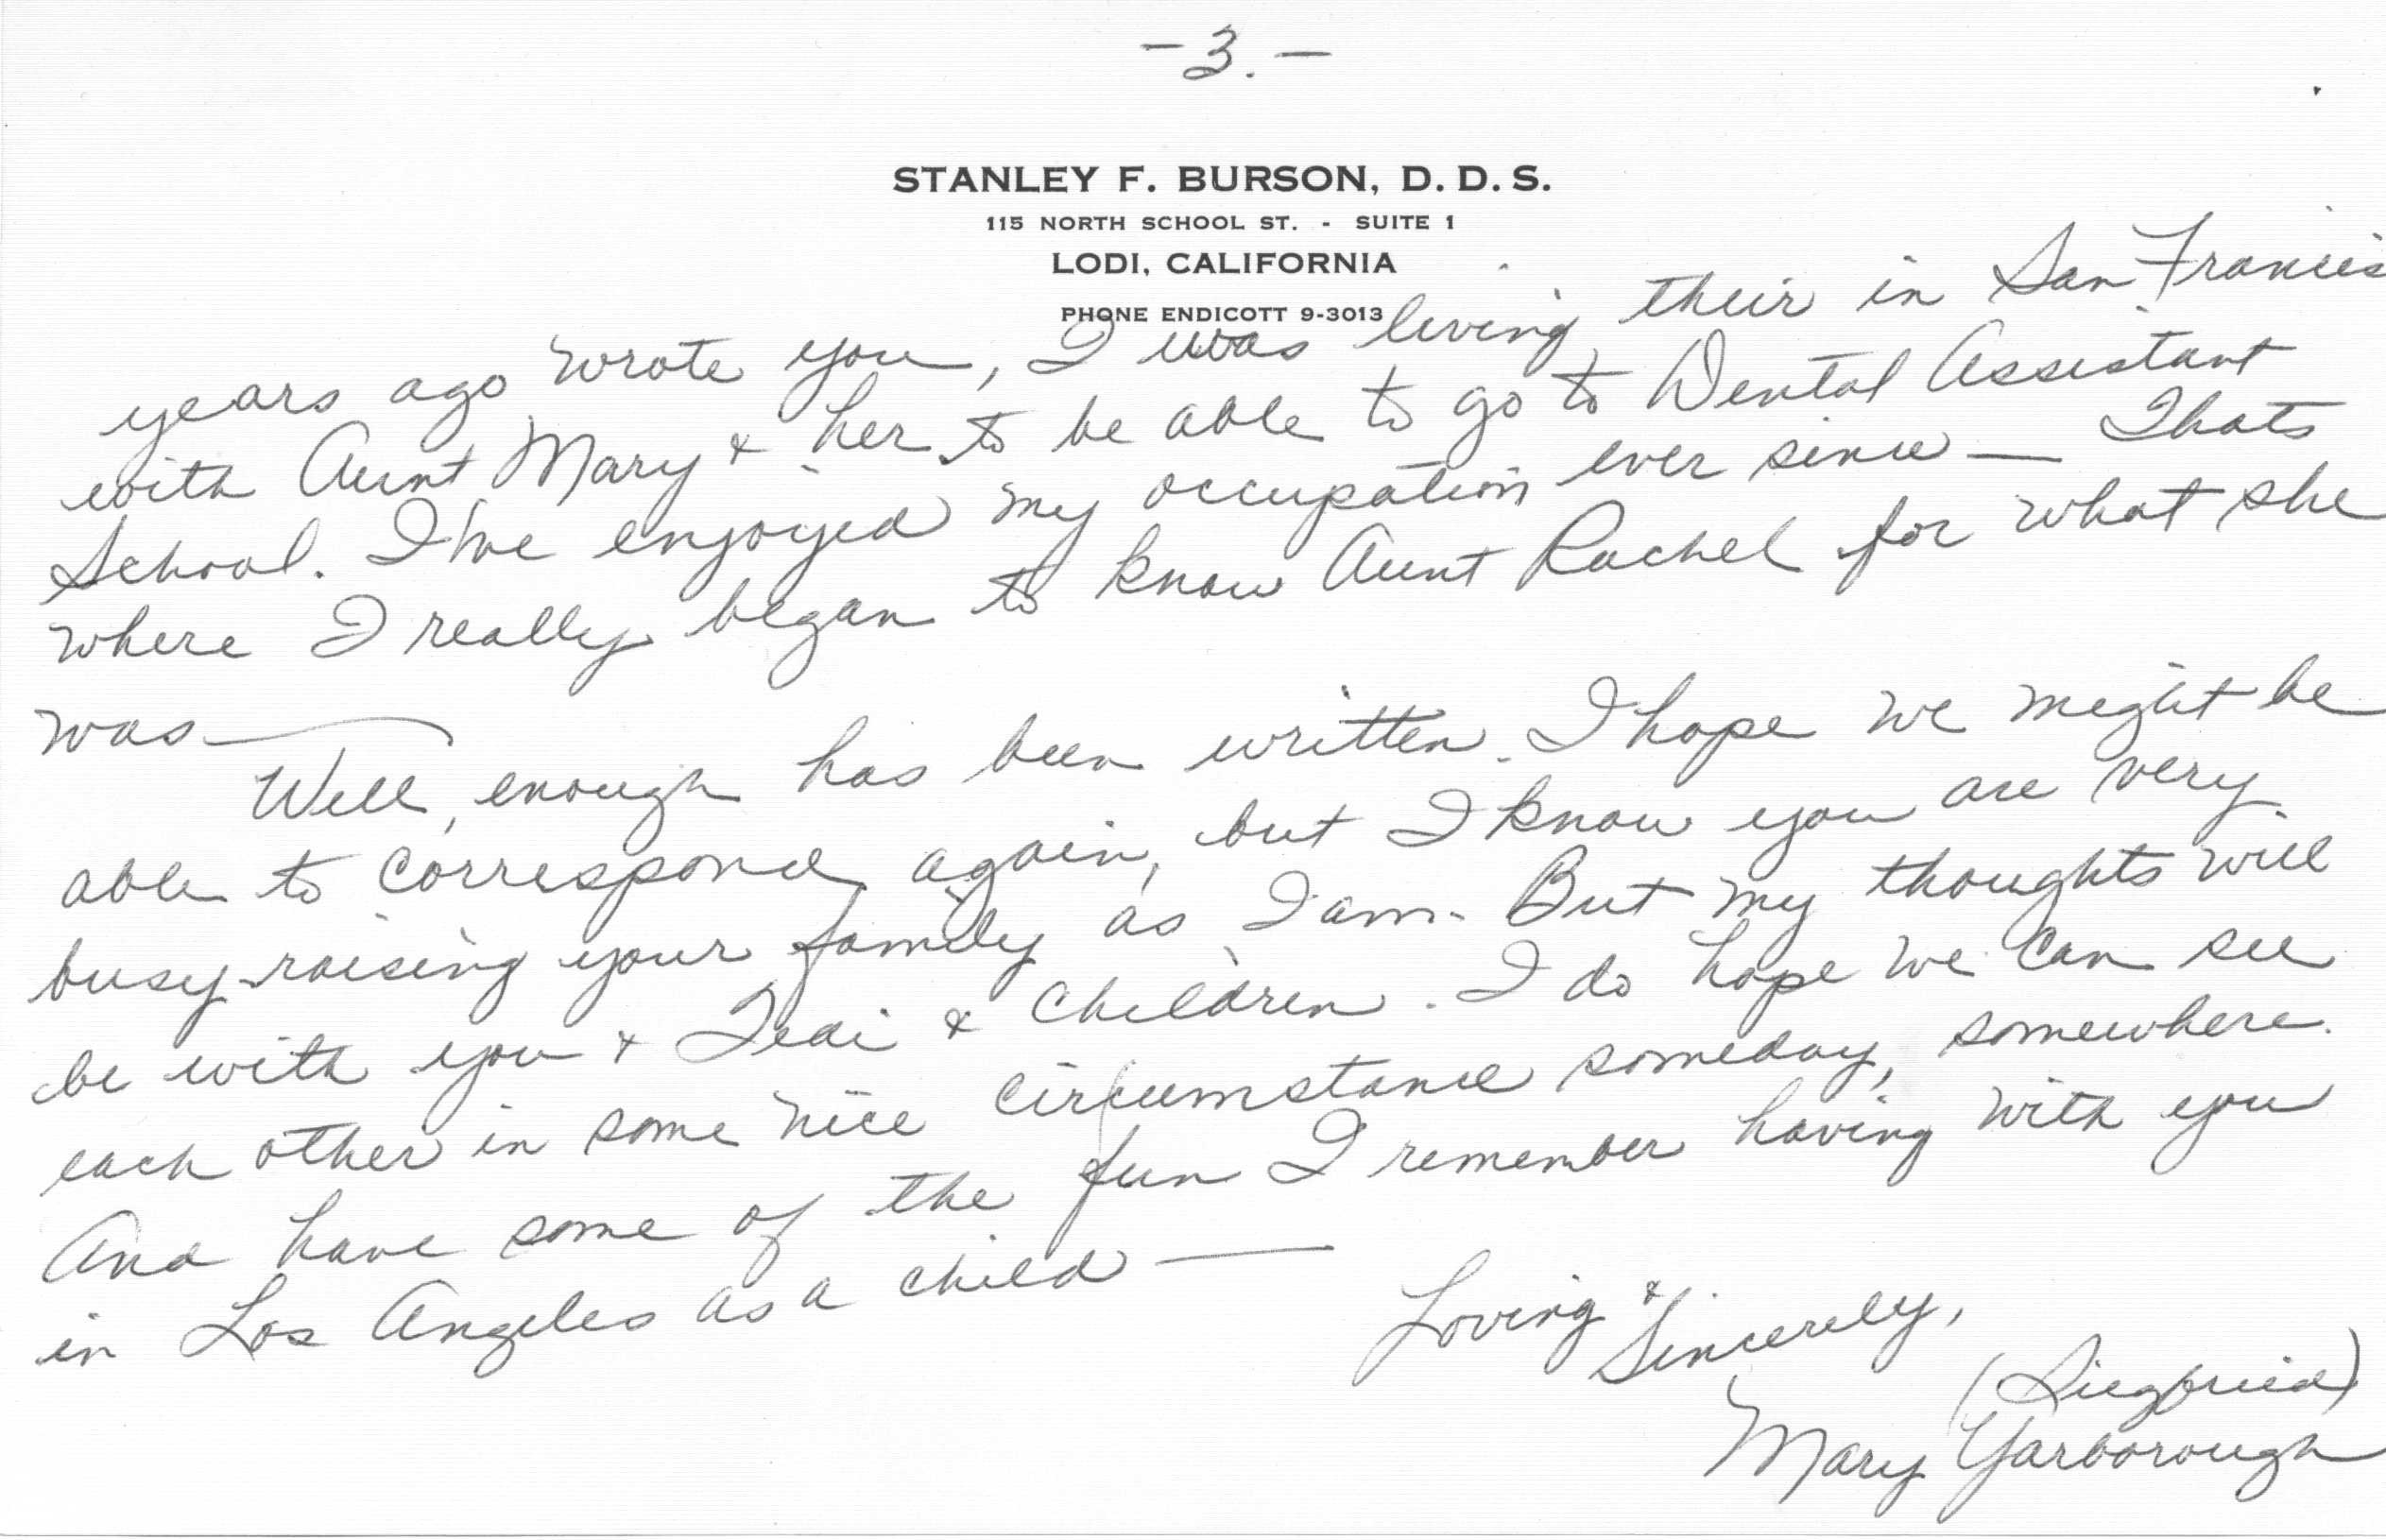 -3.-
STANLEY F. BURSON, D.D.S.
115 NORTH SCHOOL ST. - SUITE 1
LODI, CALIFORNIA
PHONE ENDICOTT 9-3013
years ago wrote you, I was living their in San Francis
with Aunt Mary & her to be able to go to Dental Assistant
School. I've enjoyed my occupation ever since — Thats
where I really began to know Aunt Rachel for what she
was —
Well, enough has been written. I hope we might be
able to correspond again, but I know you are very
busy raising your family as I am. But my thoughts will
be with you & & children. I do hope we can see
each other in some nice circumstance someday, somewhere.
And have some of the fun I remember having with you
in Los Angeles as a child —
Loving & Sincerely,
(Siegfried)
Mary Yarborough